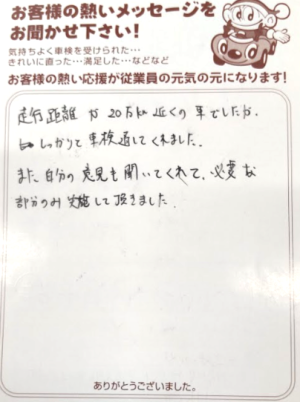 お客様の熱いメッセージを
お聞かせ下さい！
気持ちよく車検を受けられた…
きれいに直った…満足した…などなど
お客様の熱い応援が従業員の元気の元になります！
走行距離が20万km近くの車でしたが、
しっかりて車検通してくれました。
また、自分の意見も聞いてくれて、必要な
部分のみ実施して頂きました。
ありがとうございました。